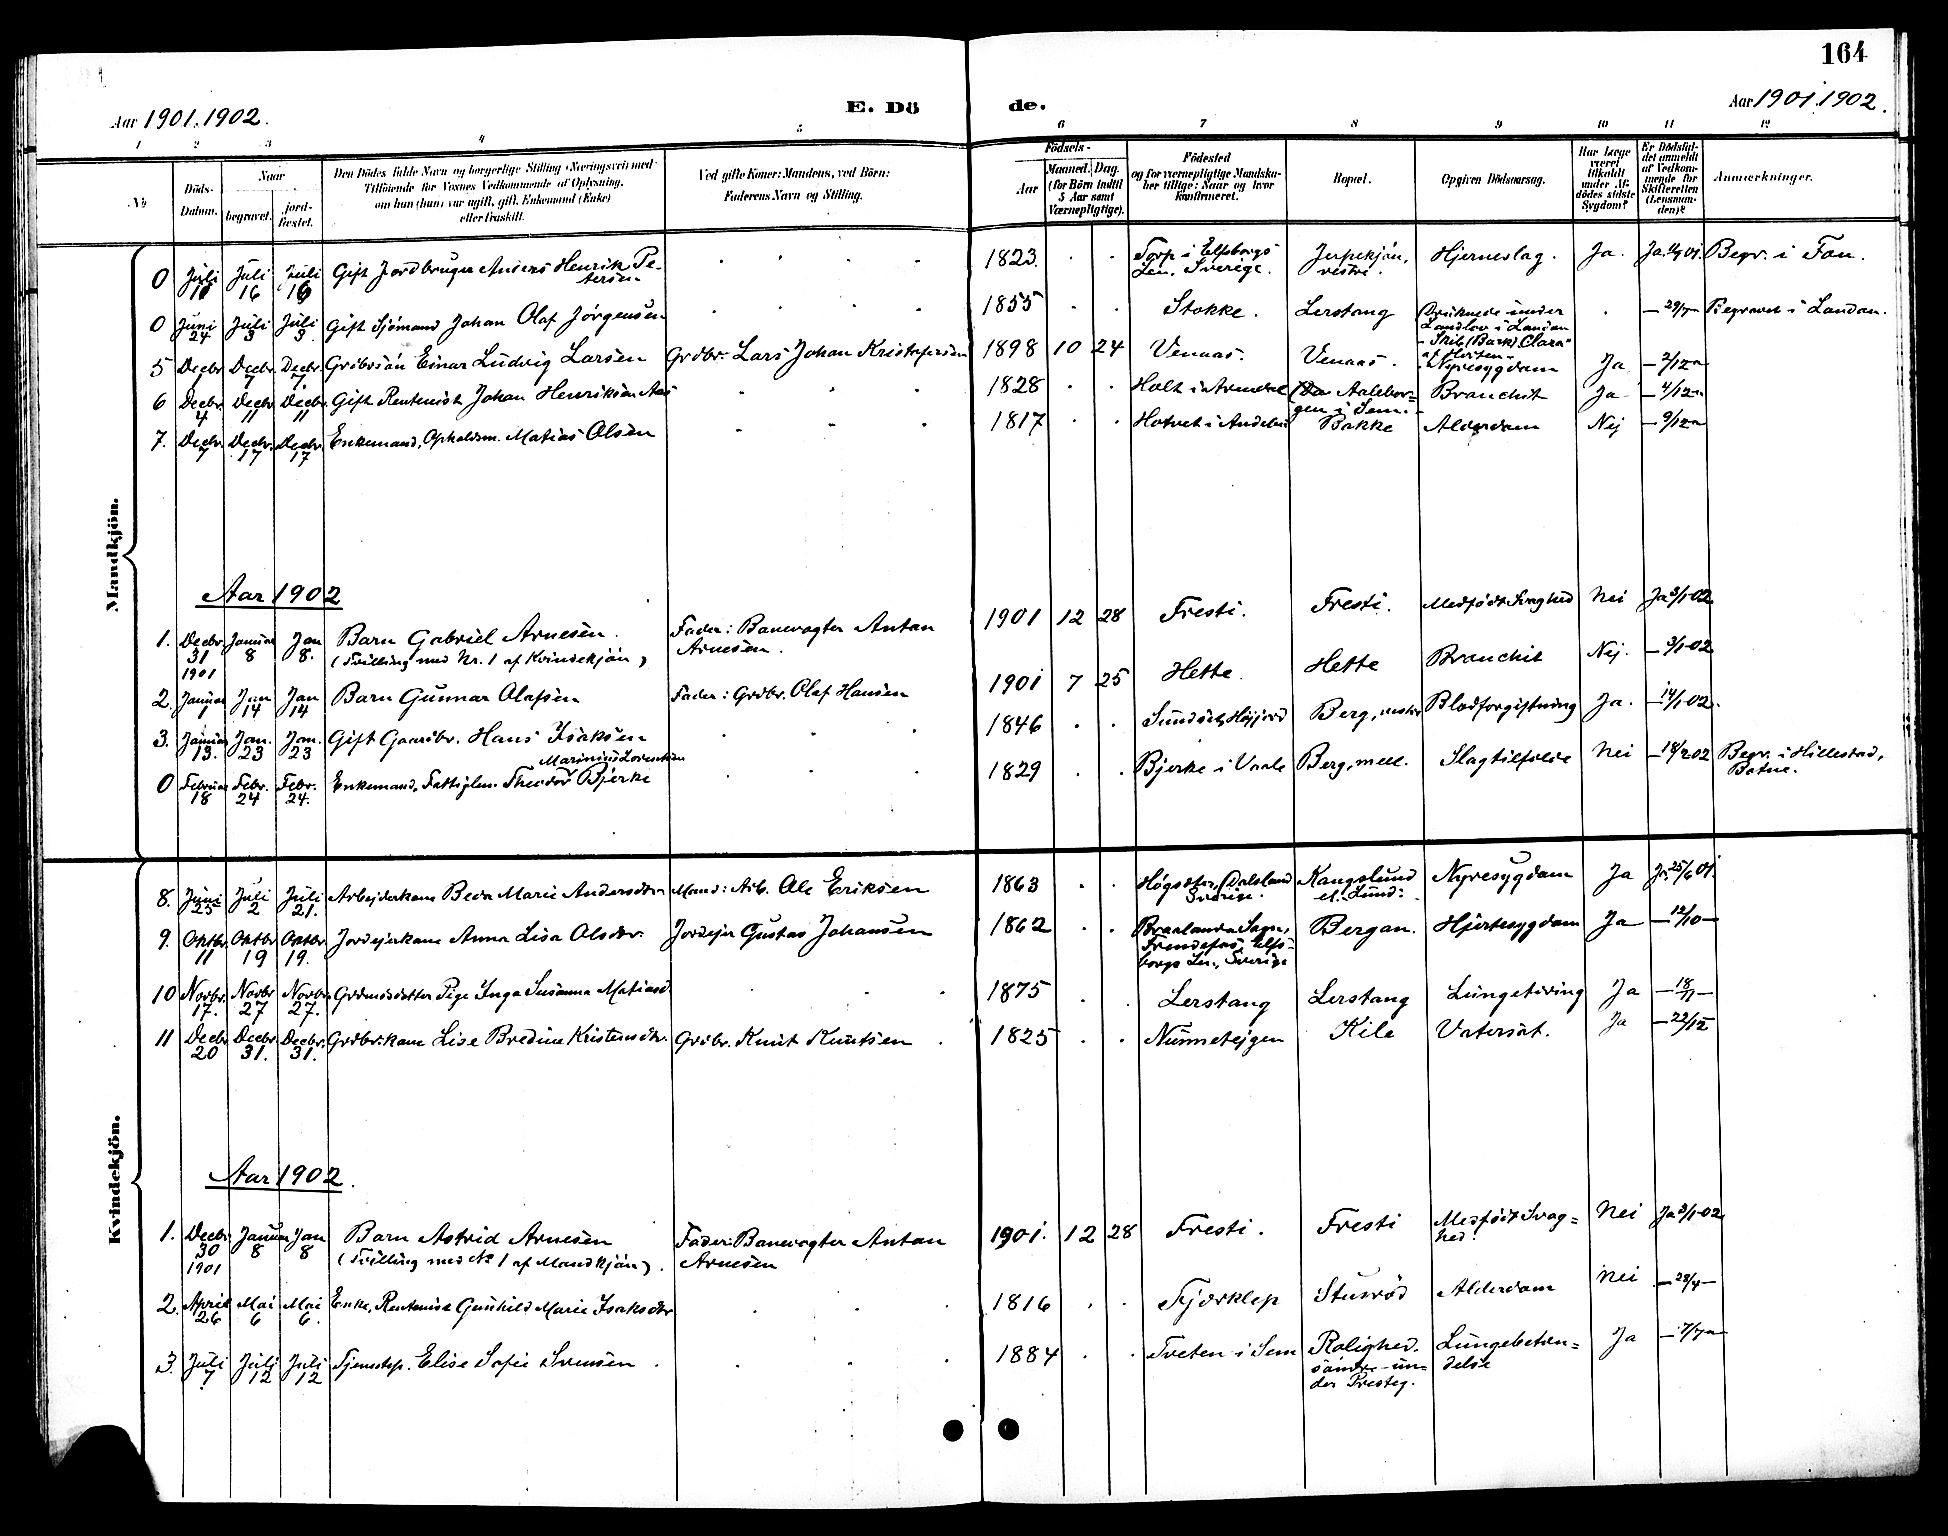 164
Aar 1901. 1902.
E. Döde.
Aar 1901. 1902.
1 2 3 4 5 6 7 8 9 10 11 12
No
Döds-Datum.
Naar
begravet.
jord-fæstet.
Den Dödes fulde Navn og borgerlige Stilling (Næringsvei) med
Tilföiende for Voxnes Vedkommende af Oplysning,
om han (hun) var ugift, gift, Enkemand (Enke)
eller fraskilt.
Ved gifte Koner: Mandens, ved Börn:
Faderens Navn og Stilling.
Födsels-
Aar
Maaned. Dag.
(for Börn indtil
5 Aar samt
Værnepligtige).
Födested
og for værnepligtige Mandska-
ber tillige: Naar og hvor
konfirmeret.
Bopæl.
Opgiven Dödsaarsag.
Har Læge
været
tilkaldt
under Af-
dödes sidste
Sygdom?
Er Dödsfal-
det anmeldt
af Vedkom-
mende for
Skifteretten
(Lensman-
den)?
Anmærkninger.
Mandkjön.
0 Juli 10 Juli 16 Juli 16 Gift Jordbruger Anders Henrik Pe-
tersen 1823 Torp i Elfsborgs
Len, Sverige. Jerpekjøn,
vestre. Hjerneslag. Ja. Begr. i Fon.
0 Juni 24 Juli 3 Juli 3 Gift Sjømand Johan Olaf Jørgensen 1855 Stokke. Lerstang Druknede under
Landlov i London
- Skib (Bark) "Clara"
af Horten - — 29/7 — Begravet i London.
5 Decbr. 1 Decbr. 7 Decbr. 7. Grdbrsøn Einar Ludvig Larsen Grdbr. Lars Johan Kristofersen 1898 10 24 Venaas. Venaas. Nyresygdom Ja — 2/12 —
6 Decbr. 4 Decbr. 11 Decbr. 11 Gift Rentenist Johan Henriksen Aas 1828 Holt i Arendal Aalebor-
gen i Sem. Bronchit Ja — 4/12 —
7. Decbr. 7 Decbr. 17 Decbr. 17 Enkemand, Opholdsm. Matias Olsen 1817 Hotvet i Andebu Bakke Alderdom Nej — 9/12 —
Aar 1902
1. Decbr. 31 1901 Januar 8 Jan 8. Barn Gabriel Arnesen.
(Tvilling med Nr. 1 af Kvindekjøn) Fader: Banevogter Anton
Arnesen. 1901 12 28 Fresti. Fresti. Medfødt Svaghed Nei Ja 3/1 02
2. Januar 1 Jan 14 Jan 14 Barn Gunnar Olafsen Fader: Grdbr. Olaf Hansen 1901 7 25 Hette. Hette Bronchit Nej. — 3/1 02
3. Januar 13. Jan. 23 Jan. 23 Gift Gaardbr. Hans Isaksen 1846 Sundset, Høyjord Berg, vestre Blodforgiftning Ja. — 14/1 02.
0 Februar 18 Febr. 24 Febr. 24. Enkemand, Fattiglem Theodor Marinius Lorentsen Bjerke 1829 Bjerke i Vaale Berg, mell. Slagtilfælde Nei — 18/2 02 Begr. i Hillestad,
Botne.
Kvindekjön.
8. Juni 25 Juli 2 Juli 21. Arbejderkone Beda Marie Andersdtr. Mand: Arb. Ole Eriksen 1863 Høgsæter, Dalsland
Sverige. Kongslund
el. Lund: Nyresygdom Ja Ja 25/6 01.
9. Oktbr. 11 Oktbr 19 Oktbr 19. Jordejerkone Anna Lisa Olsdtr. Jordejer Gustav Johansen 1862 Braalanda Sogn,
Frendefos, Elfs-
borgs Len, Sverige Bergan. Hjertesygdom Ja — 12/10 —
10 Novbr. 17. Novbr 27 Novbr. 27. Grdmdsdatter Pige Inga Susanna Matiasd. 1875 Lerstang Lerstang Lungetæring Ja — 18/11 —
11 Decbr 20 Decbr. 31. Decbr. 31. Grdbr.kone Lise Bredine Kristensdtr. Grdbr. Knut Knutsen 1825 Nunnetejgen Kile Vatersot. Ja — 22/12
Aar 1902.
1. Decbr 30 1901 Januar 8 Jan 8 Barn Astrid Arnesen
(Tvilling med No 1 af Mandkjøn). Fader: Banevogter Anton
Arnesen 1901. 12 28 Fresti. Fresti Medfødt Svag-
hed. Nei Ja 3/1 02
2. April 26 Mai 6 Mai 6. Enke, Rentenist Gunhild Marie Isaksdtr 1816 Fjærklep Stusrød Alderdom Nei — 28/4 —
3. Juli 7 Juli 12 Juli 12 Tjenestep. Elise Sofie Svensen 1884 Tveten i Sem Rolighed.
søndre un-
der Presteg. Lungebetæn-
delse Ja — 7/7 —